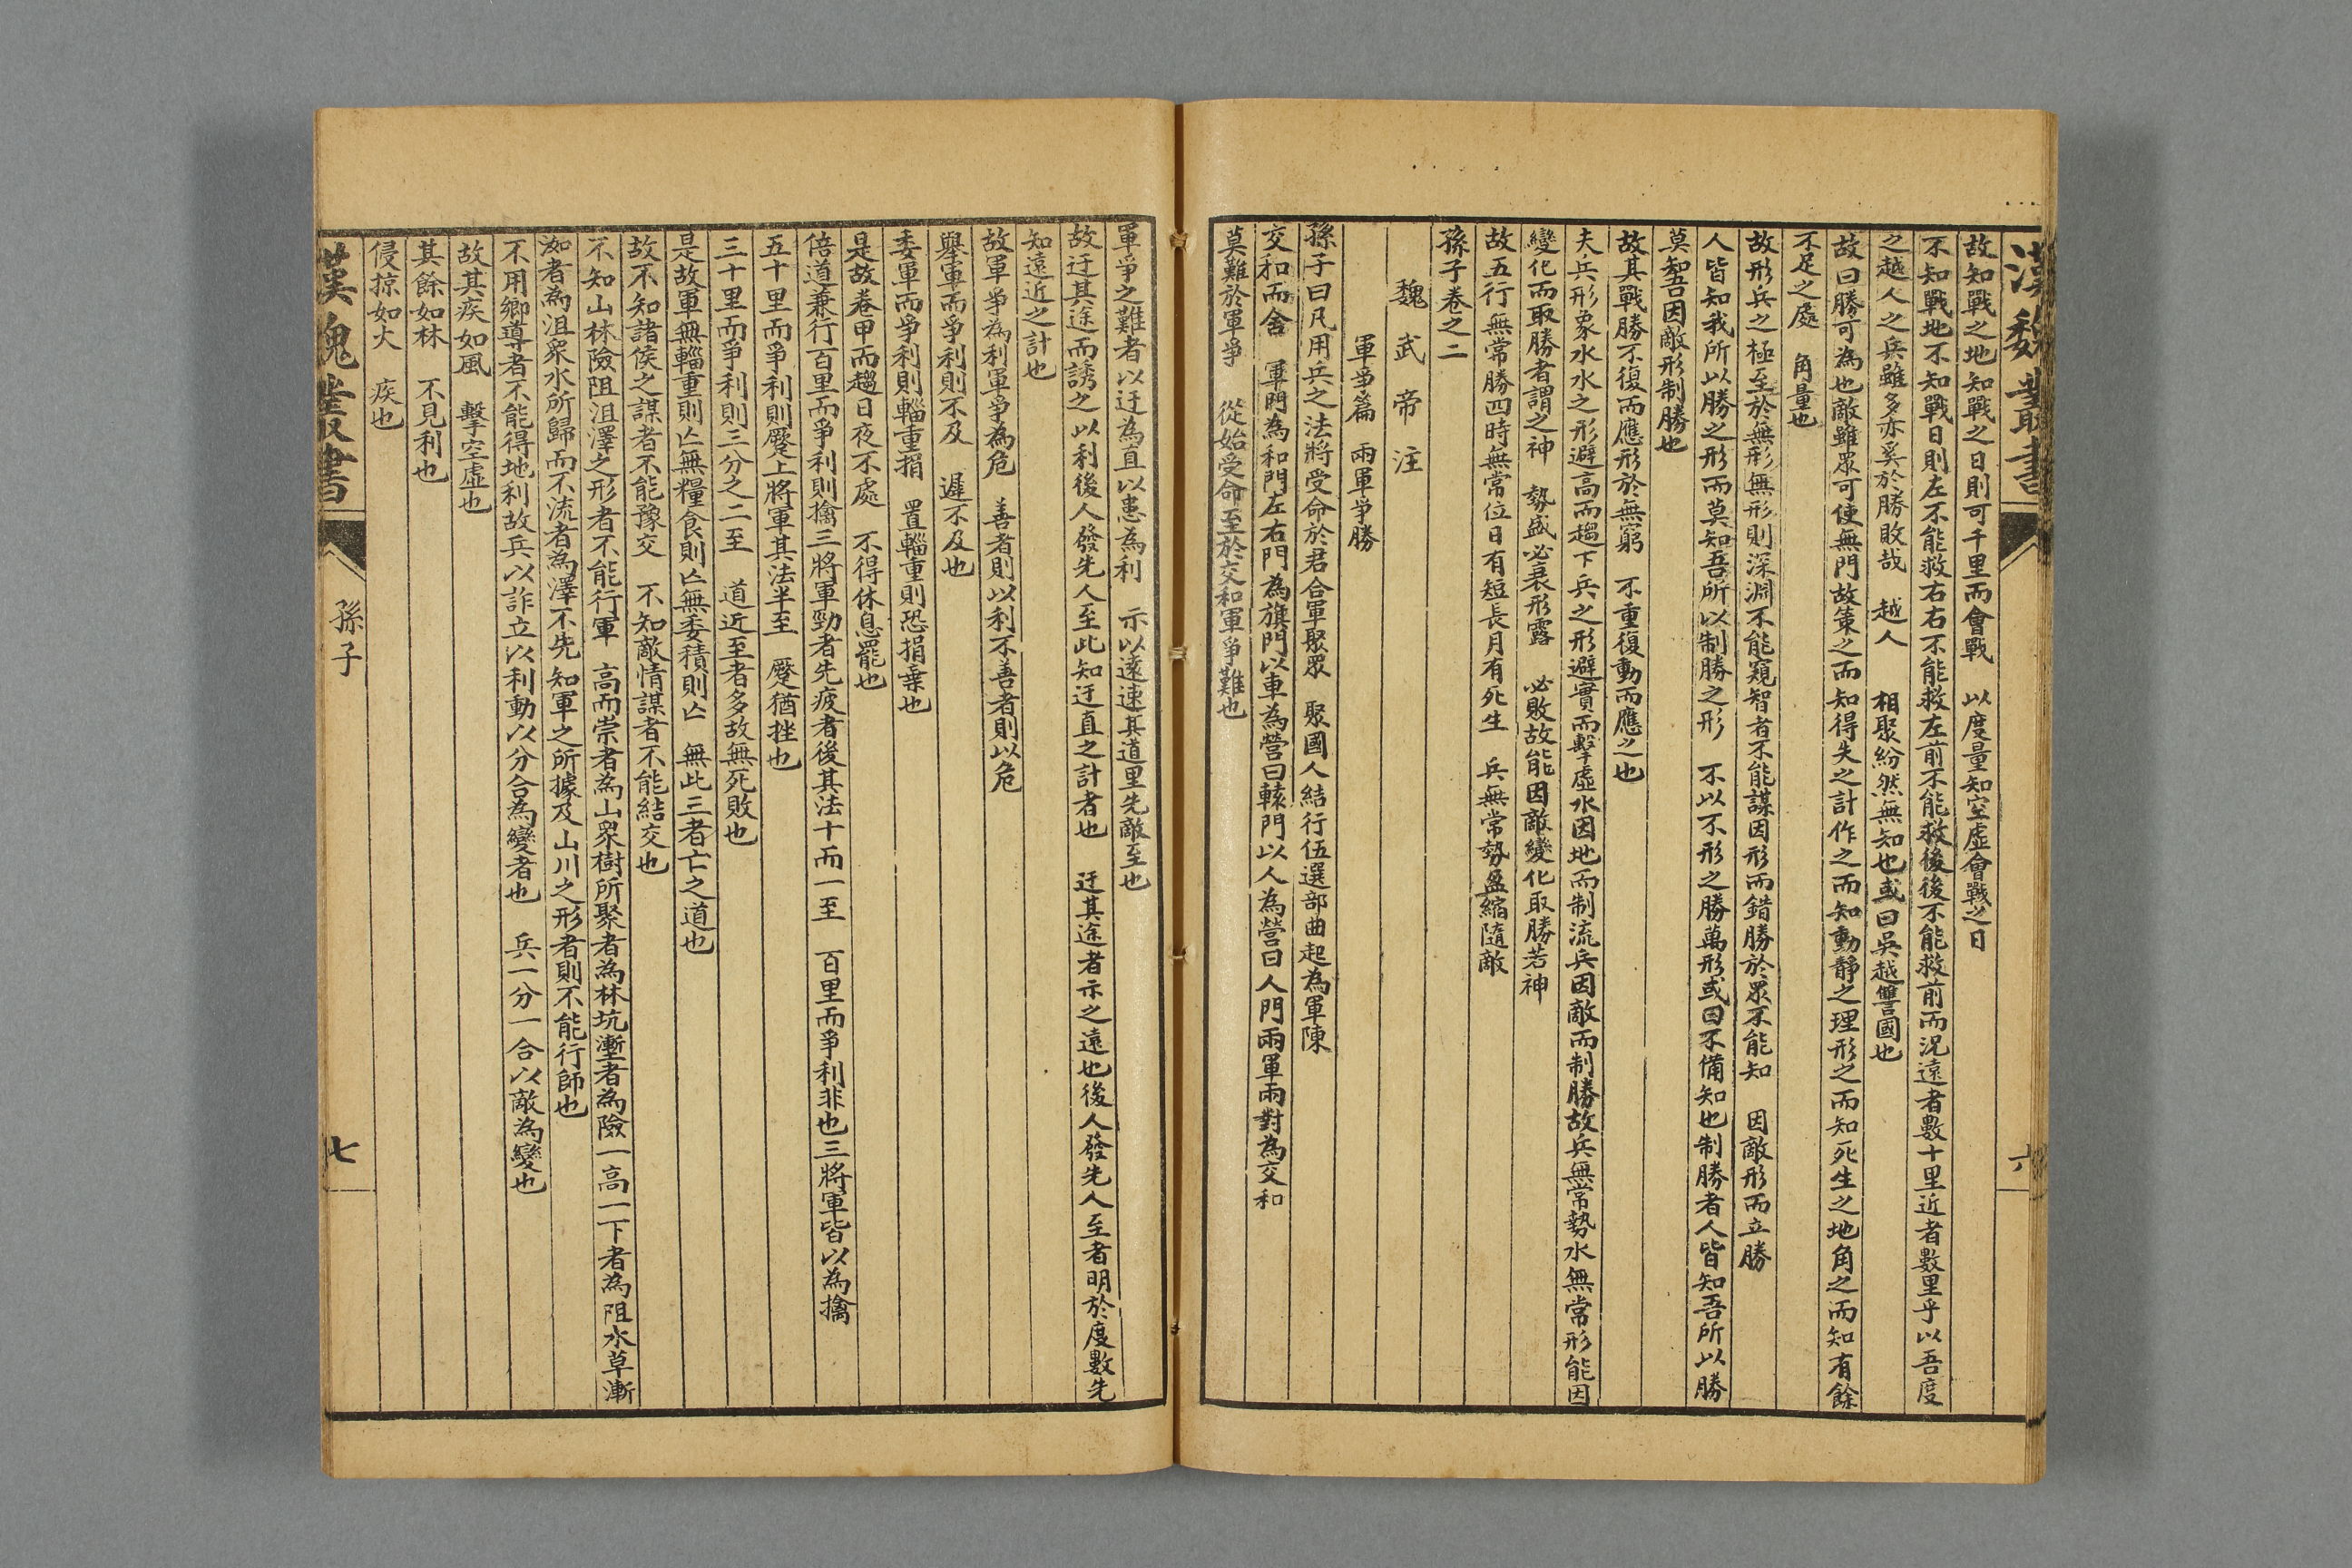 漢魏叢書
六
故知戰之地知戰之日則可千里而會戰　以度量知空虛會戰之日
不知戰地不知戰日則左不能救右右不能救左前不能救後後不能救前而況遠者數十里近者數里乎以吾度
之越人之兵雖多亦奚於勝敗哉　越人　相聚紛然無知也或曰吳越讐國也
故曰勝可為也敵雖眾可使無鬥故策之而知得失之計作之而知動靜之理形之而知死生之地角之而知有餘
不足之處　角量也
故形兵之極至於無形無形則深淵不能窺智者不能謀因形而錯勝於眾不能知　因敵形而立勝
人皆知我所以勝之形而莫知吾所以制勝之形　不以不形之勝萬形或曰不備知也制勝者人皆知吾所以勝
莫知吾因敵形制勝也
故其戰勝不復而應形於無窮　不重復動而應之也
夫兵形象水水之形避高而趨下兵之形避實而擊虛水因地而制流兵因敵而制勝故兵無常勢水無常形能因
變化而取勝者謂之神　勢盛必衰形露　必敗故能因敵變化取勝若神
故五行無常勝四時無常位日有短長月有死生　兵無常勢盈縮隨敵
孫子卷之二
魏武帝注
軍爭篇　兩軍爭勝
孫子曰凡用兵之法將受命於君合軍聚眾　聚國人結行伍選部曲起為軍陳
交和而舍　軍門為和門左右門為旗門以車為營曰轅門以人為營曰人門兩軍兩對為交和
莫難於軍爭　從始受命至於交和軍爭難也
軍爭之難者以迂為直以患為利　示以遠速其道里先敵至也
故迂其途而誘之以利後人發先人至此知迂直之計者也　迂其途者示之遠也後人發先人至者明於度數先
知遠近之計也
故軍爭為利軍爭為危　善者則以利不善者則以危
舉軍而爭利則不及　遲不及也
委軍而爭利則輜重捐　置輜重則恐捐棄也
是故卷甲而趨日夜不處　不得休息罷也
倍道兼行百里而爭利則擒三將軍勁者先疲者後其法十而一至　百里而爭利非也三將軍皆以為擒
五十里而爭利則蹷上將軍其法半至　蹷猶挫也
三十里而爭利則三分之二至　道近至者多故無死敗也
是故軍無輜重則亾無糧食則亾無委積則亾　無此三者亡之道也
故不知諸侯之謀者不能豫交　不知敵情謀者不能結交也
不知山林險阻沮澤之形者不能行軍　高而崇者為山衆樹所聚者為林坑塹者為險一高一下者為阻水草漸
洳者為沮衆水所歸而不流者為澤不先知軍之所據及山川之形者則不能行師也
不用鄉導者不能得地利故兵以詐立以利動以分合為變者也　兵一分一合以敵為變也
故其疾如風　擊空虛也
其餘如林　不見利也
侵掠如火　疾也
漢魏叢書
孫子
七